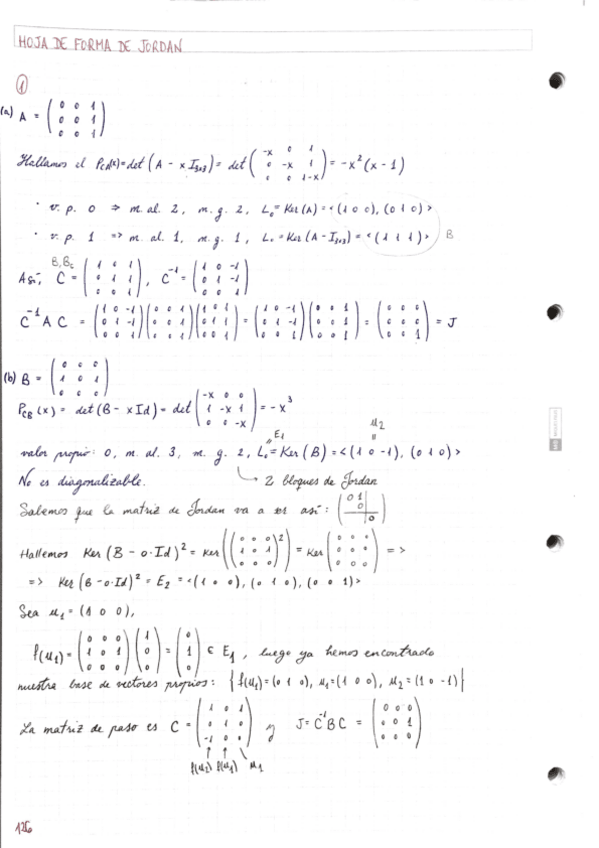 HOJA DE FORMA DE JORDAN
①
(a) A = ( 0 0 1 ; 0 0 1 ; 0 0 1 )
Hallamos el P_CA(x) = det (A - x I₃ₓ₃) = det ( -x 0 1 ; 0 -x 1 ; 0 0 1-x ) = -x² (x - 1)
· v. p. 0 => m. al. 2, m. g. 2, L₀ = Ker (A) = < (1 0 0), (0 1 0) >
· v. p. 1 => m. al. 1, m. g. 1, L₁ = Ker (A - I₃ₓ₃) = < (1 1 1) > B
Así, C = ( 1 0 1 ; 0 1 1 ; 0 0 1 ), C⁻¹ = ( 1 0 -1 ; 0 1 -1 ; 0 0 1 )
C⁻¹ A C = ( 1 0 -1 ; 0 1 -1 ; 0 0 1 ) ( 0 0 1 ; 0 0 1 ; 0 0 1 ) ( 1 0 1 ; 0 1 1 ; 0 0 1 ) = ( 1 0 -1 ; 0 1 -1 ; 0 0 1 ) ( 0 0 1 ; 0 0 1 ; 0 0 1 ) = ( 0 0 0 ; 0 0 0 ; 0 0 1 ) = J
(b) B = ( 0 0 0 ; 1 0 1 ; 0 0 0 )
P_CB (x) = det (B - x Id) = det ( -x 0 0 ; 1 -x 1 ; 0 0 -x ) = - x³
E₁ u₂
valor propio: 0, m. al. 3, m. g. 2, L₀ = Ker (B) = < (1 0 -1), (0 1 0) >
No es diagonalizable. → 2 bloques de Jordan
Sabemos que la matriz de Jordan va a ser así: ( 0 1 ; 0 ; 0 )
Hallemos Ker (B - 0·Id)² = Ker ( ( 0 0 0 ; 1 0 1 ; 0 0 0 )² ) = Ker ( 0 0 0 ; 0 0 0 ; 0 0 0 ) =>
=> Ker (B - 0·Id)² = E₂ = < (1 0 0), (0 1 0), (0 0 1) >
Sea u₁ = (1 0 0),
f(u₁) = ( 0 0 0 ; 1 0 1 ; 0 0 0 ) ( 1 ; 0 ; 0 ) = ( 0 ; 1 ; 0 ) ∈ E₁, luego ya hemos encontrado
nuestra base de vectores propios: { f(u₁) = (0 1 0), u₁ = (1 0 0), u₂ = (1 0 -1) }
La matriz de paso es C = ( 1 0 1 ; 0 1 0 ; -1 0 0 ) y J = C⁻¹ B C = ( 0 0 0 ; 0 0 1 ; 0 0 0 )
f(u₂) f(u₁) u₁
126